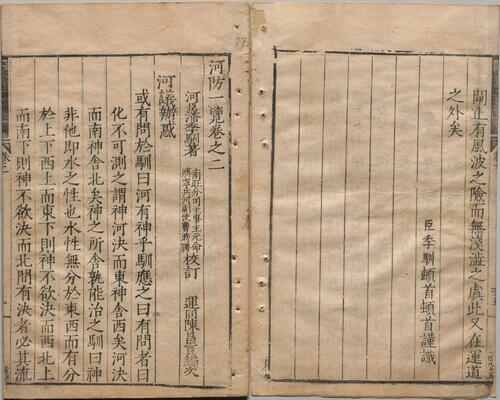 閘止有風波之險而無淺澁之虞此又在運道
之外矣
臣季馴頓首頓首謹識
河防一覽卷之二
河臣潘季馴著
南旺分司主事王元命
濟寧兵河副使曹時聘
校訂
運同陳昌言編次
河議辯惑
或有問於馴曰河有神乎馴應之曰有問者曰
化不可測之謂神河決而東神舍西矣河決
而南神舍北矣神之所舍孰能治之馴曰神
非他即水之性也水性無分於東西而有分
於上下西上而東下則神不欲決而西北上
而南下則神不欲決而北間有決者必其流